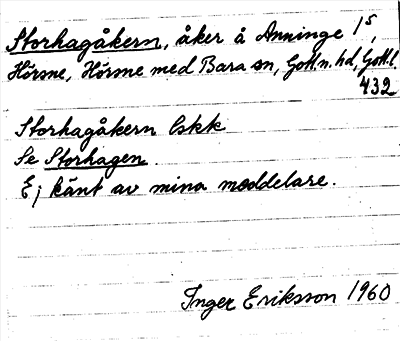 Storhagåkern, åker å Anninge 1⁵,
Hörsne, Hörsne med Bara sn, Gotl.n. hd, Gotl.l.
432
Storhagåkern Lskk
Se Storhagen.
Ej känt av mina meddelare.
Inger Eriksson 1960